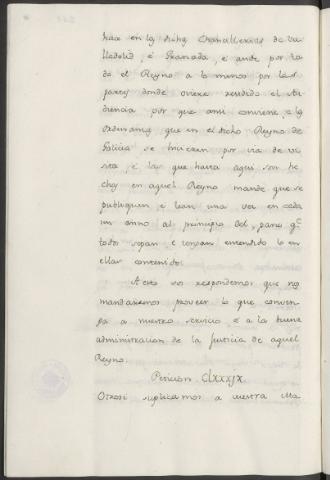 hace en las dichas Chancillerias de Va-
lladolid, é Granada, é ande por to-
do el Reyno a lo menos por las
partes donde oviere residido el Au-
diencia por que ansi conviene, e las
ordenanzas que en el dicho Reyno de
Galicia se hicieren por via de vi-
sita, é las que hasta aqui son he-
chas en aquel Reyno mande que se
publiquen e lean una vez en cada
un anno al principio del, para qe
todos sepan e tengan entendido lo en
ellas contenido.
A esto vos respondemos que nos
mandaremos proveer lo que conven-
ga a nuestro servicio é a la buena
administracion de la Justicia de aquel
Reyno.
Peticion CLxxxjx
Otrosi suplicamos a vuestra Ma-